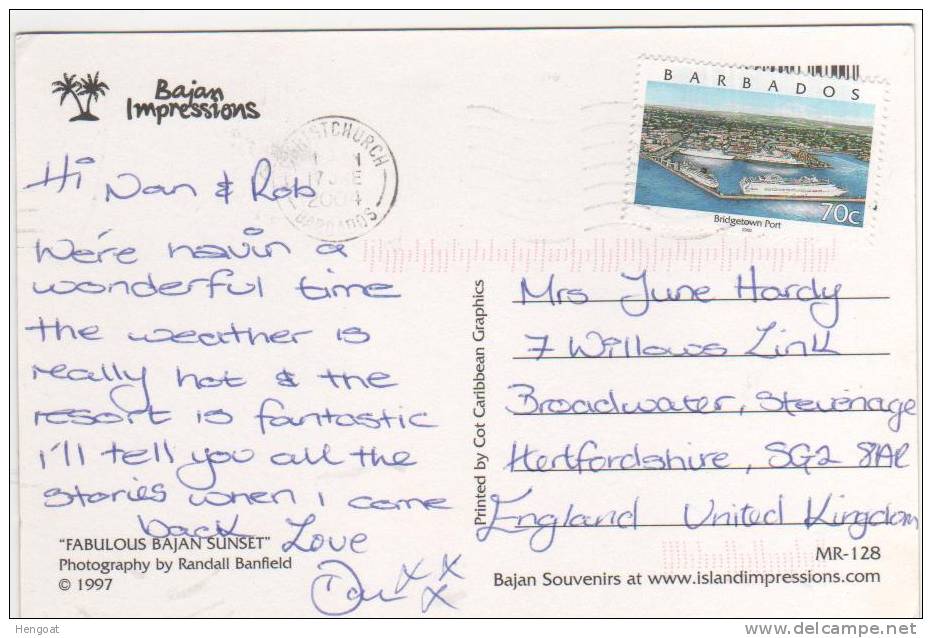 Bajan
Impressions
BARBADOS
70c
Bridgetown Port
CHRISTCHURCH
17
2004
BARBADOS
Hi Nan & Rob
We're havin a
wonderful time
the weather is
really hot & the
resort is fantastic
i'll tell you all the
stories when i come
back Love
xxx
"FABULOUS BAJAN SUNSET"
Photography by Randall Banfield
© 1997
Printed by Cot Caribbean Graphics
Mrs June Hardy
7 Willows Link
Broadwater, Stevenage
Hertfordshire, SG2 8AP
England United Kingdom
MR-128
Bajan Souvenirs at www.islandimpressions.com
Hengoat
delcampe.net